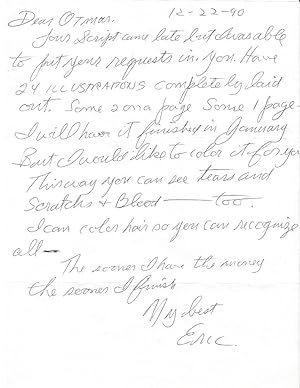 Dear Otmar.
12-22-90
Your Script came late but I was able
to put your requests in. You. Have
24 ILLUSTRATIONS completely laid
out. Some 2 on a page Some 1 page-
I will have it finished in January
But I would like to color it for you
This way you can see tears and
Scratchs + Blood —— too.
I can color hair so you can recognize
all —
The sooner I have the money
the sooner I finish
My best
Eric.